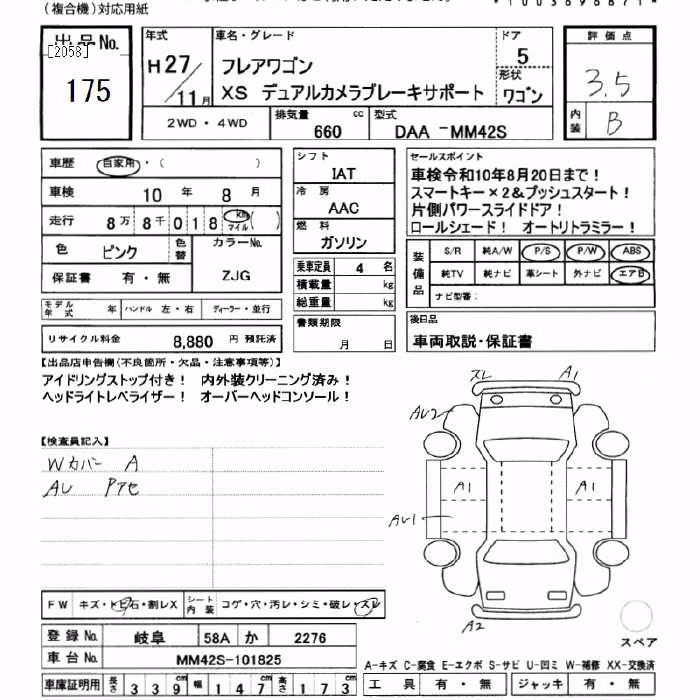 (複合機)対応用紙
出品No.
[2058]
175
年式
H27/11月
車名・グレード
フレアワゴン
XS デュアルカメラブレーキサポート
ドア
5
形状
ワゴン
評価点
3.5
内装
B
2WD・4WD
排気量
660
cc
型式
DAA-MM42S
車歴
自家用・( )
車検
10年 8月
走行
8万8千018
km
マイル
( )
色
ピンク
色替
カラーNo.
ZJG
保証書
有・無
モデル年式
年
ハンドル
左・右
ディーラー・並行
リサイクル料金
8,880
円 預託済
シフト
IAT
冷房
AAC
燃料
ガソリン
乗車定員
4
名
積載量
kg
総重量
kg
書類期限
月 日
セールスポイント
車検令和10年8月20日まで!
スマートキー×2&プッシュスタート!
片側パワースライドドア!
ロールシェード! オートリトラミラー!
装備品
S/R 純A/W P/S P/W ABS
純TV 純ナビ 革シート 外ナビ エアB
ナビ型番:
後日品
車両取説・保証書
【出品店申告欄(不良箇所・欠品・注意事項等)】
アイドリングストップ付き! 内外装クリーニング済み!
ヘッドライトレベライザー! オーバーヘッドコンソール!
【検査員記入】
Wカバー A
AU Pアセ
スレ
A1
AU2
A1
A1
AU1
A2
スペア
FW
キズ・トビ石・割レX
シート内装
コゲ・穴・汚レ・シミ・破レ・スレ
登録No.
岐阜 58A か 2276
車台No.
MM42S-101825
車庫証明用
長さ 339
幅 147
高さ 173
A-キズ C-腐食 E-エクボ S-サビ U-凹ミ W-補修 XX-交換済
工具
有・無
ジャッキ
有・無